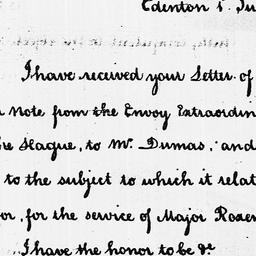 Edenton 1. Ju
I have received your Letter of
Note from the Envoy Extraordin
Hague, to Mr. Dumas, and
to the subject to which it relat
or, for the service of Major Rozen
I have the honor to be &c